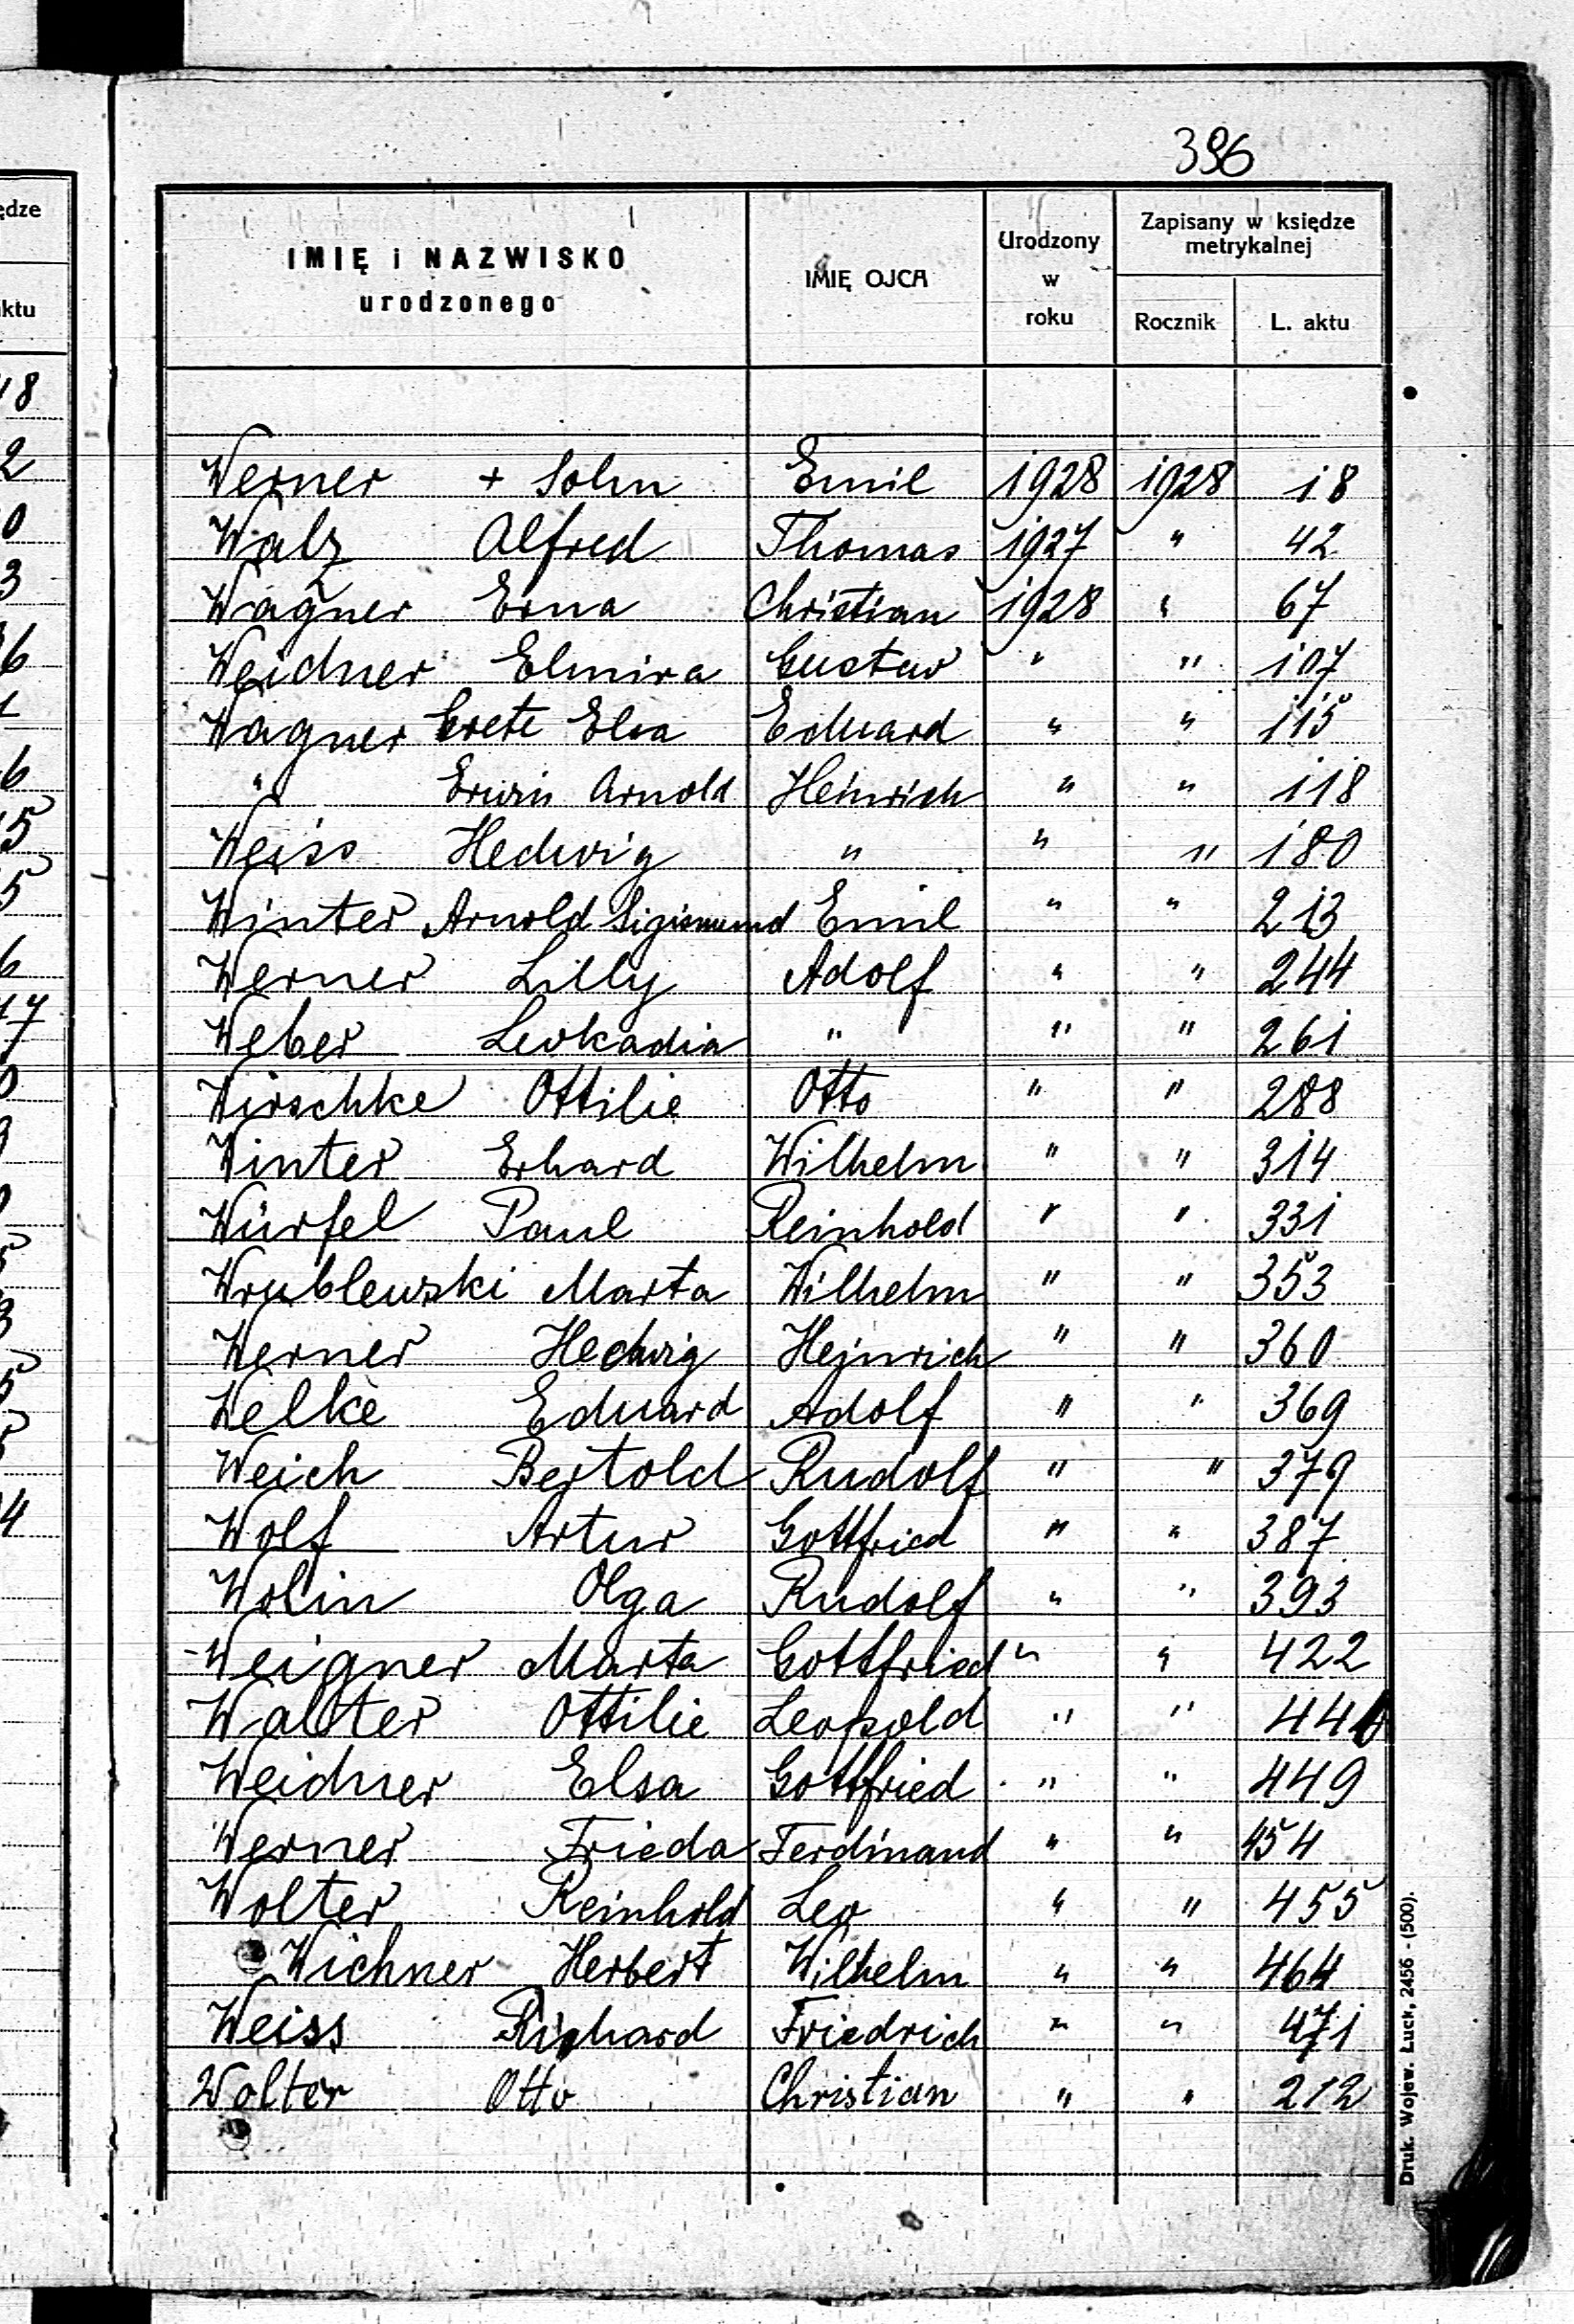 396
IMIĘ i NAZWISKO urodzonego IMIĘ OJCA Urodzony w roku Zapisany w księdze metrykalnej
Rocznik L. aktu
Werner + Sohn Emil 1928 1928 18
Walz Alfred Thomas 1927 " 42
Wagner Erna Christian 1928 " 67
Weidner Elmira Gustav " " 107
Wagner Grete Elsa Eduard " " 115
" Erwin Arnold Heinrich " " 118
Weiss Hedwig " " " 180
Winter Arnold Sigismund Emil " " 213
Werner Lilly Adolf " " 244
Weber Leokadia " " " 261
Wirschke Ottilie Otto " " 288
Winter Erhard Wilhelm " " 314
Würfel Paul Reinhold " " 331
Wrublewski Marta Wilhelm " " 353
Werner Hedwig Heinrich " " 360
Welke Eduard Adolf " " 369
Weich Bertold Rudolf " " 379
Wolf Artur Gottfried " " 387
Wolin Olga Rudolf " " 393
Weigner Marta Gottfried " " 422
Walter Ottilie Leopold " "
Weidner Elsa Gottfried " " 449
Werner Frieda Ferdinand " " 454
Wolter Reinhold Leo " " 455
Wichner Herbert Wilhelm " " 464
Weiss Richard Friedrich " " 471
Wolter Otto Christian " " 212
Druk. Wojew. Łuck, 2456 - (500).
ędze
aktu
18
2
0
3
6
1
6
5
5
6
17
0
9
0
5
3
5
5
4